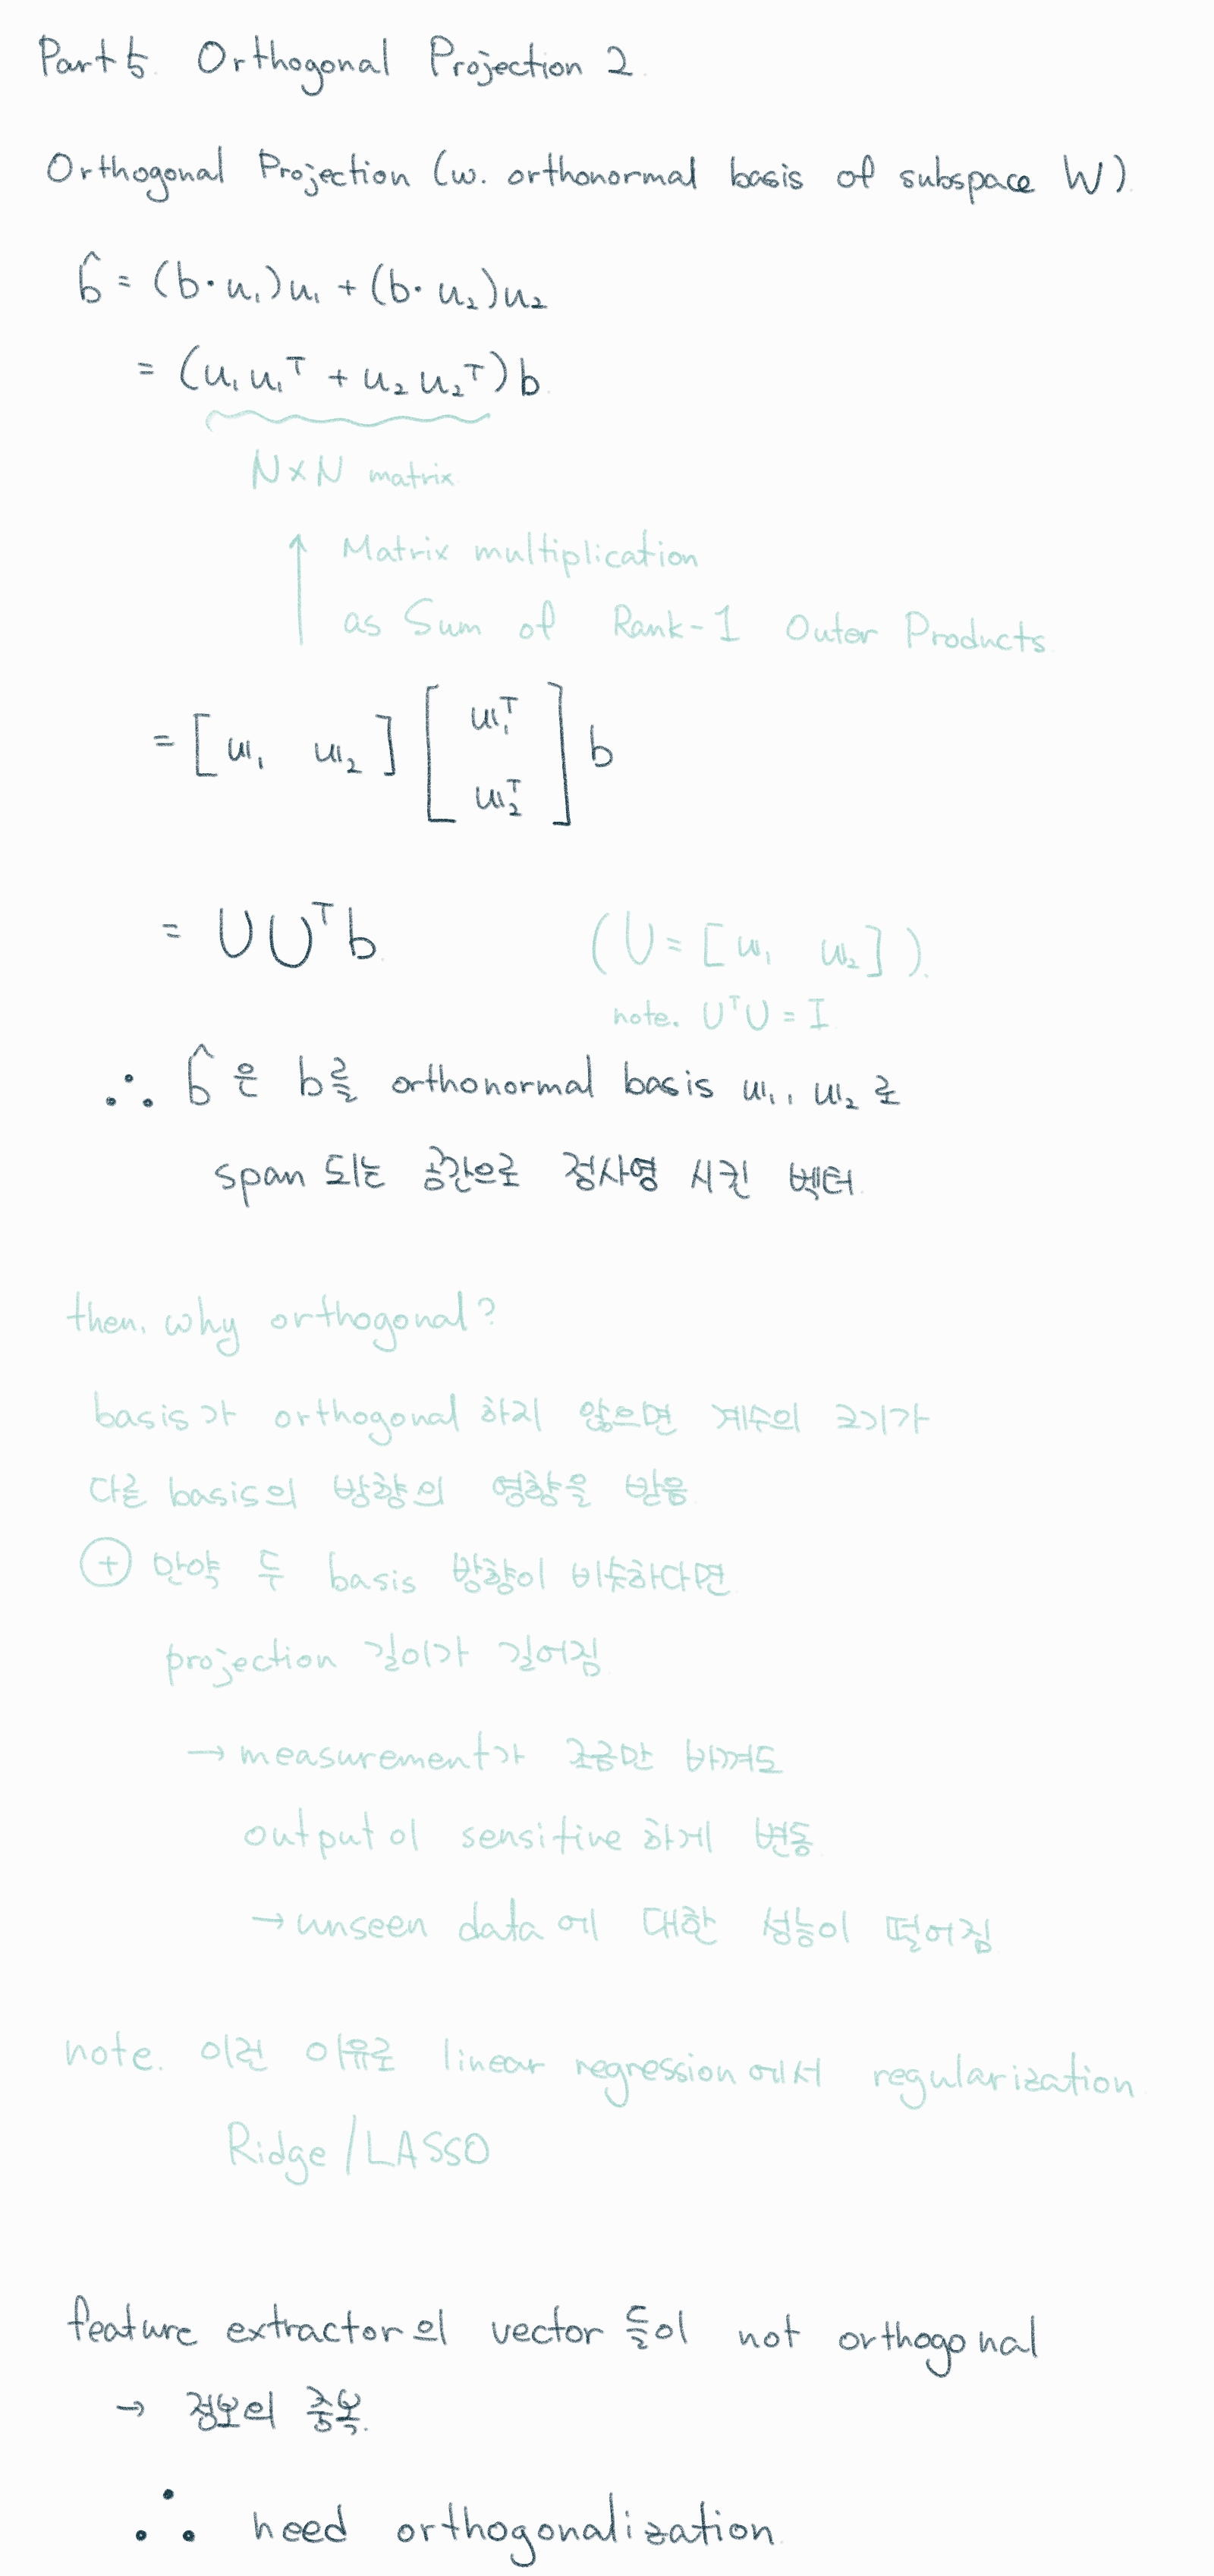 Part 5. Orthogonal Projection 2.
Orthogonal Projection (w. orthonormal basis of subspace W).
b̂ = (b·u₁)u₁ + (b·u₂)u₂
= (u₁u₁ᵀ + u₂u₂ᵀ)b.
N×N matrix
↑ Matrix multiplication
as Sum of Rank-1 Outer Products.
= [u₁ u₂] [u₁ᵀ
u₂ᵀ] b
= UUᵀb. (U = [u₁ u₂]).
note. UᵀU = I
∴ b̂은 b를 orthonormal basis u₁, u₂로
span 되는 공간으로 정사영 시킨 벡터.
then, why orthogonal?
basis가 orthogonal 하지 않으면 계수의 크기가
다른 basis의 방향의 영향을 받음
⊕ 만약 두 basis 방향이 비슷하다면
projection 길이가 길어짐
→ measurement가 조금만 바껴도
output이 sensitive 하게 변동
→ unseen data에 대한 성능이 떨어짐
note. 이런 이유로 linear regression에서 regularization
Ridge/LASSO
feature extractor의 vector들이 not orthogonal
→ 정보의 중복.
∴ need orthogonalization.